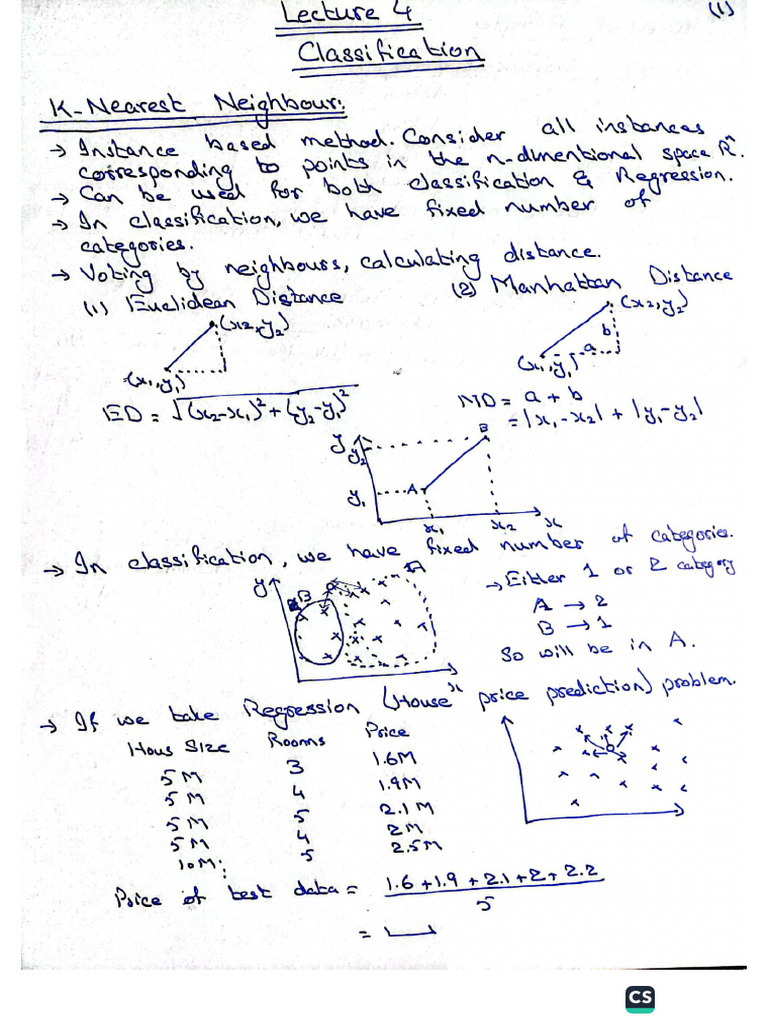 Lecture 4
(1)
Classification
K-Nearest Neighbour:
→ Instance based method. Consider all instances
corresponding to points in the n-dimentional space Rⁿ.
→ Can be used for both classification & Regression.
→ In classification, we have fixed number of
categories.
→ Voting by neighbours, calculating distance.
(1) Euclidean Distance
(2) Manhattan Distance
(x2, y2)
(x1, y1)
ED = √(x2-x1)² + (y2-y1)²
(x2, y2)
b
a
(x1, y1)
MD = a + b
= |x1-x2| + |y1-y2|
y
y2
B
y1
A
x1
x2
x
→ In classification, we have fixed number of categories.
y
B
A
x
→ Either 1 or 2 category
A → 2
B → 1
So will be in A.
→ If we take Regression (House price prediction) problem.
Hous Size Rooms Price
5M 3 1.6M
5M 4 1.9M
5M 5 2.1M
5M 4 2M
10M 5 2.5M
Price of test data = 1.6 + 1.9 + 2.1 + 2 + 2.2
5
=
CS